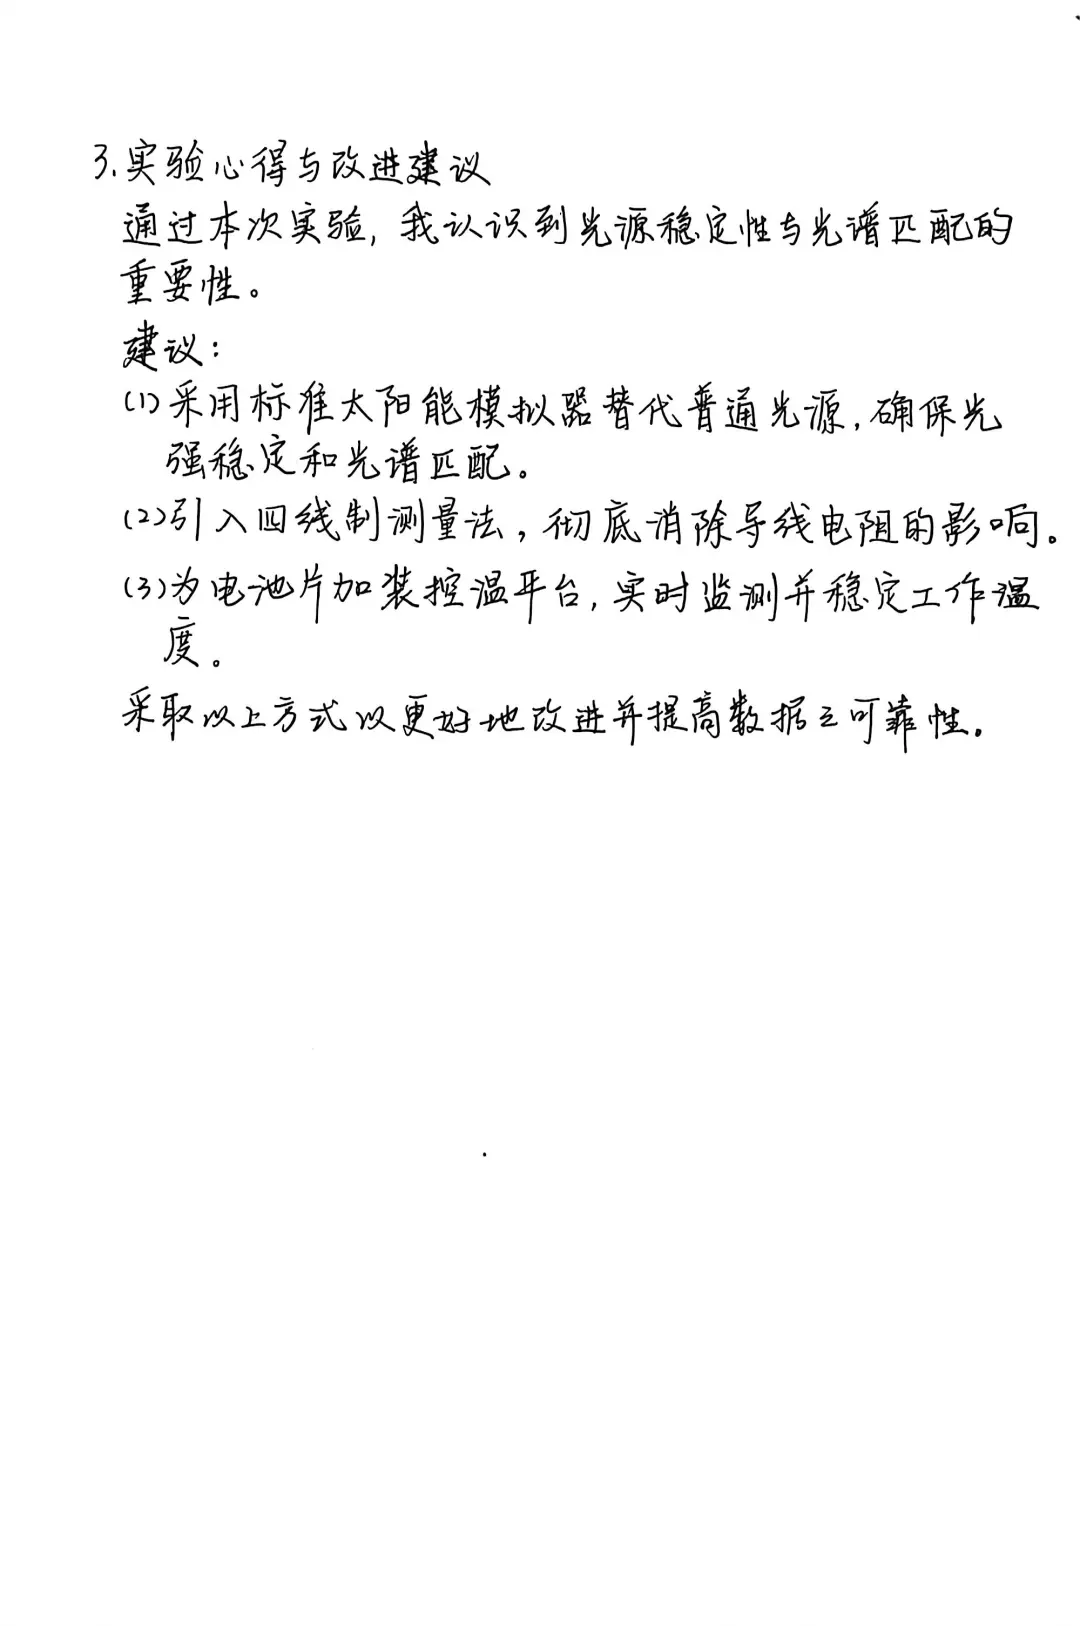 3.实验心得与改进建议
通过本次实验,我认识到光源稳定性与光谱匹配的
重要性。
建议:
(1)采用标准太阳能模拟器替代普通光源,确保光
强稳定和光谱匹配。
(2)引入四线制测量法,彻底消除导线电阻的影响。
(3)为电池片加装控温平台,实时监测并稳定工作温
度。
采取以上方式以更好地改进并提高数据之可靠性.